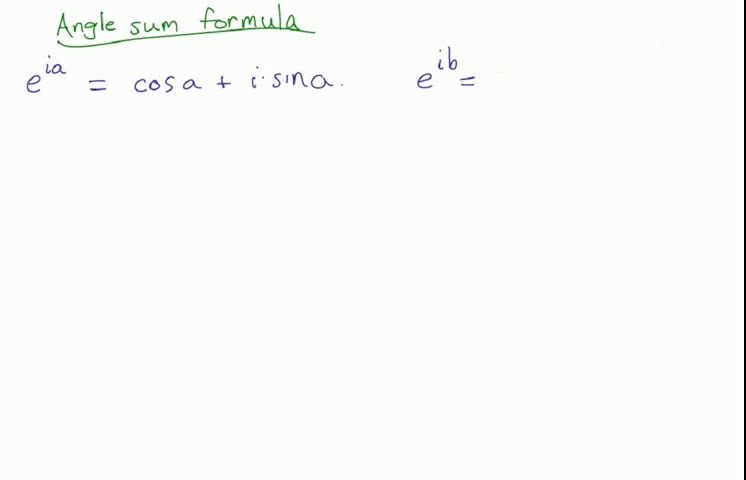 Angle sum formula
e^{ia} = cos a + i · sin a. e^{ib} =